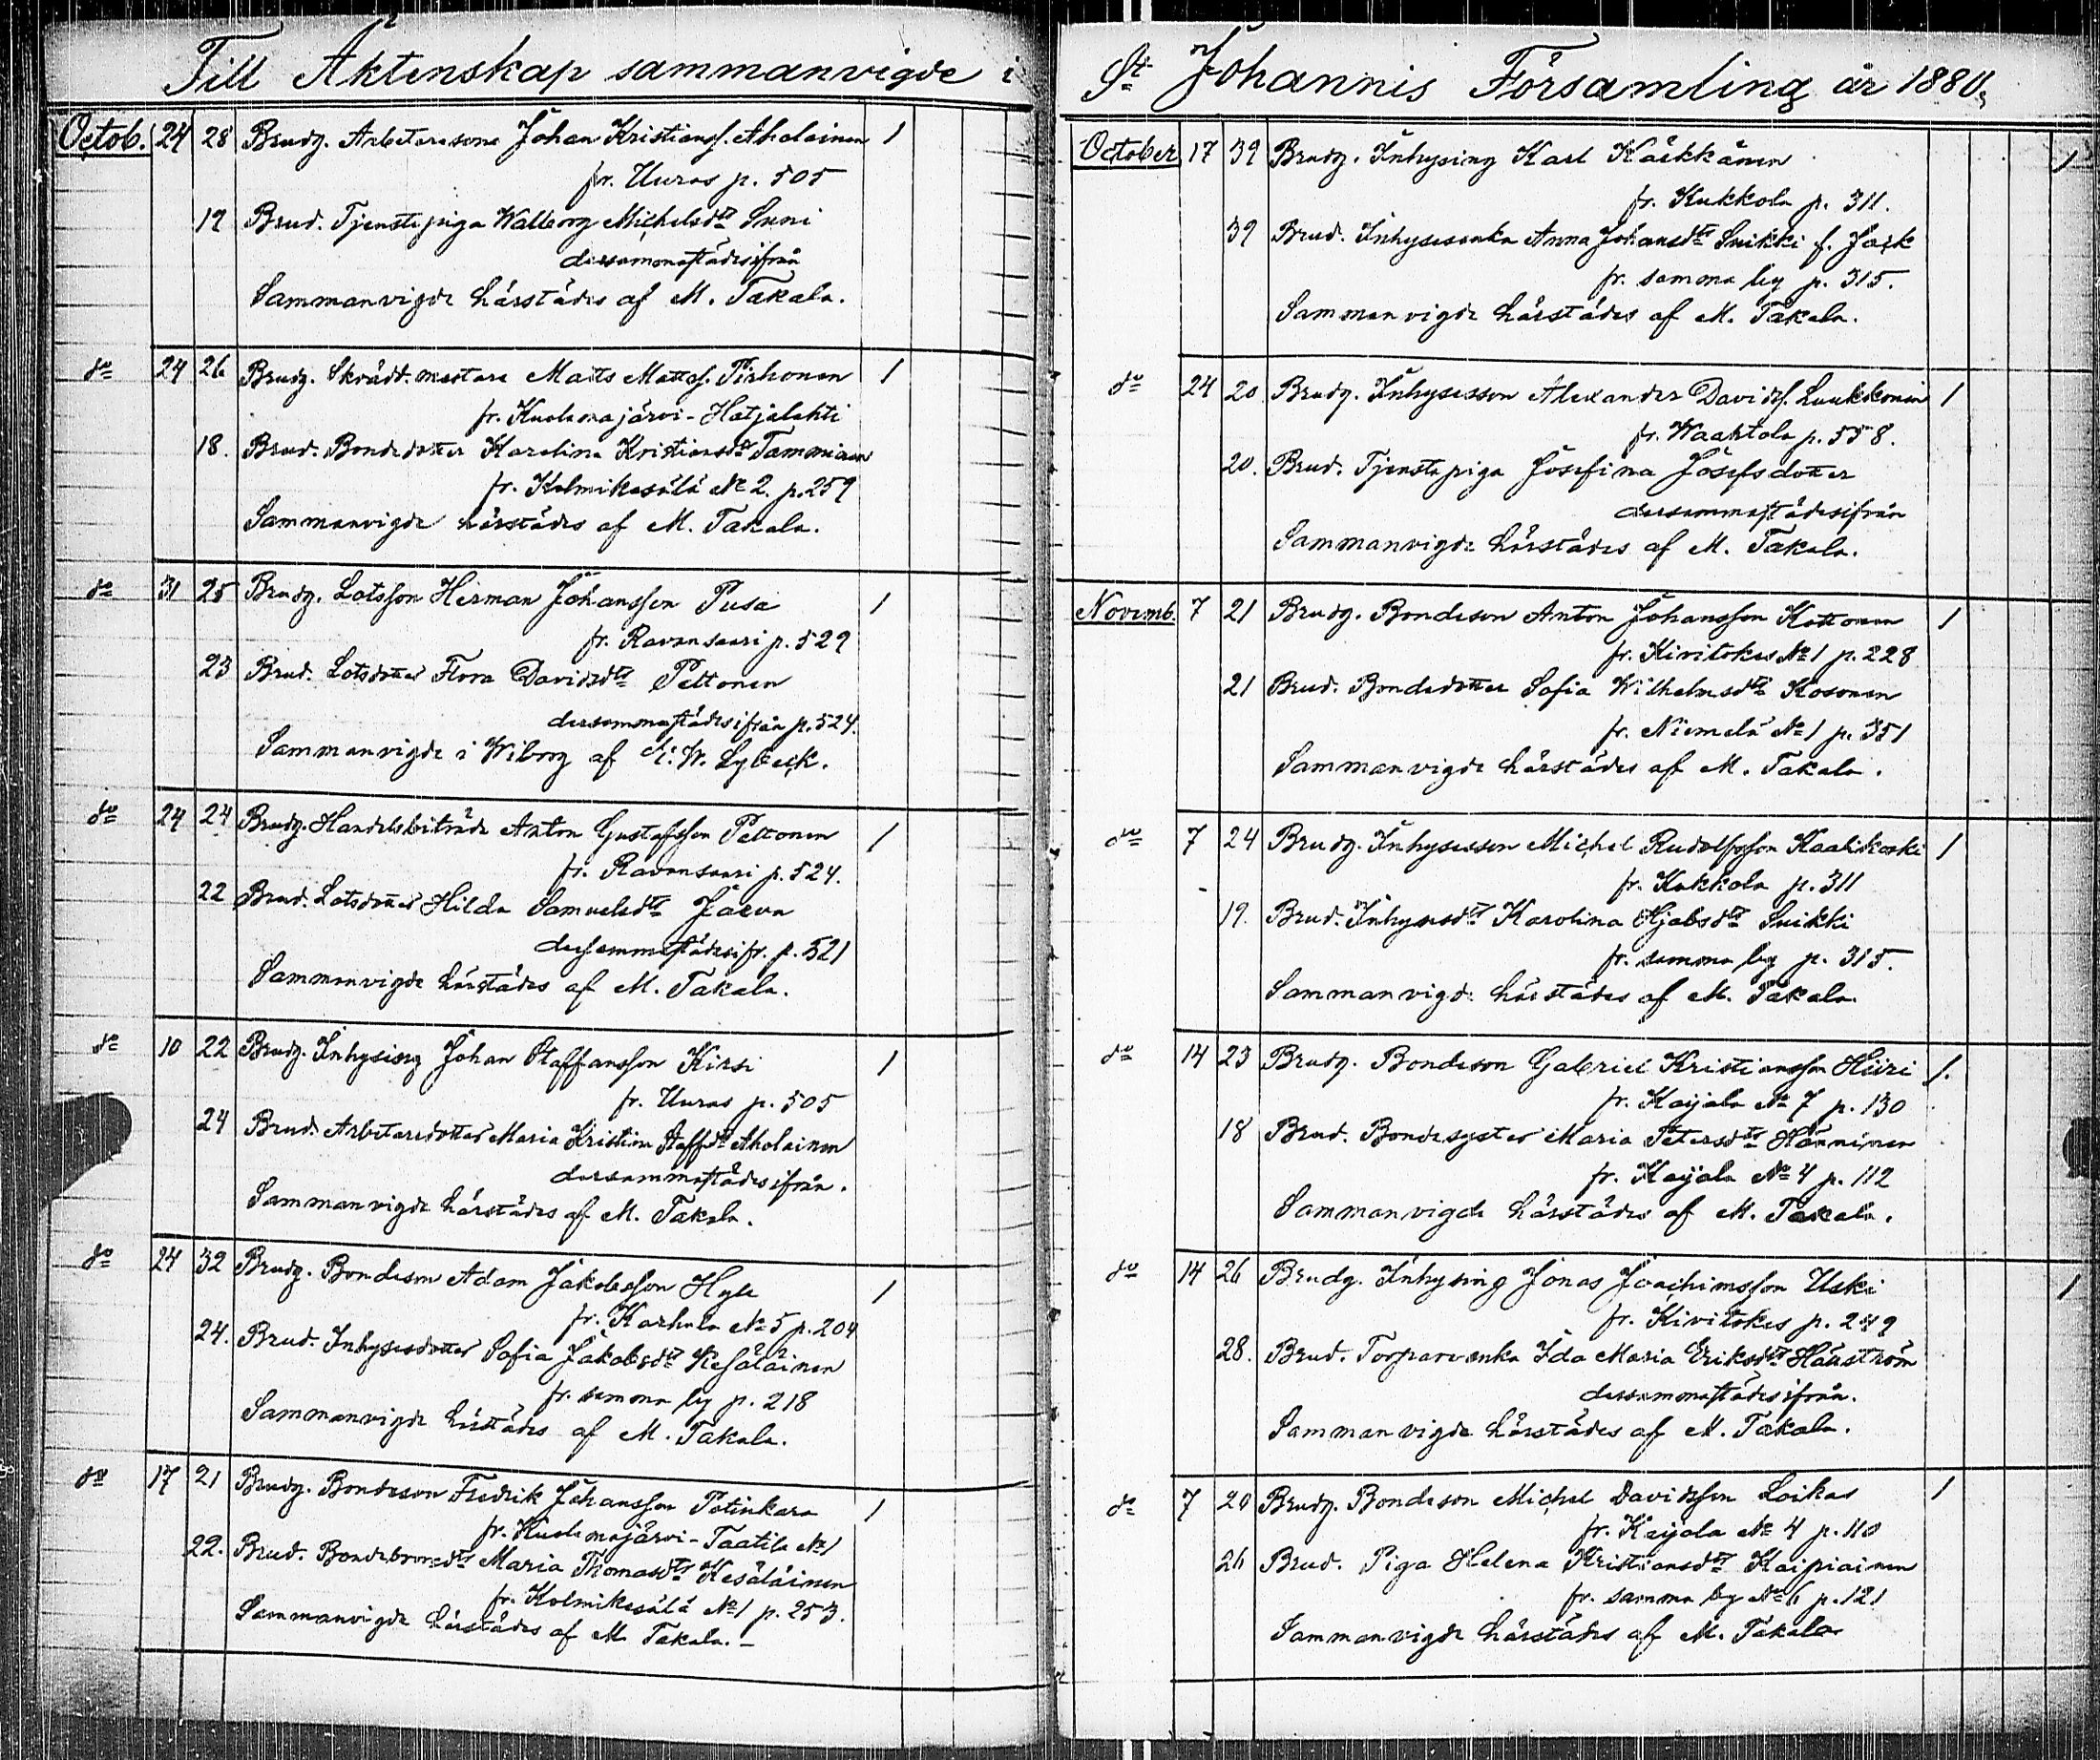 Till Äktenskap sammanvigde i
Octob. 24 28 Brudg. Arbetaresone Johan Kristianss. Aholainen 1
fr. Uuras p. 505
19 Brud. Tjenstepiga Walborg Michelsdr Suni
dersammastädesifrån
Sammanvigde härstädes af M. Takala.
do 24 26 Brudg. Skräd. mästare Matts Mattss. Pirhonen 1
fr. Kuolemajärvi - Hatjalahti
18. Brud. Bondedotter Karolina Kristiansdr Tamminen
fr. Kolmikesälä No 2. p. 259
Sammanvigde härstädes af M. Takala.
do 31 25 Brudg. Lotsson Herman Johansson Pusa 1
fr. Ravansaari p. 529
23 Brud. Lotsdotter Flora Davidsdtr Peltonen
dersammastädesifrån p. 524.
Sammanvigde i Wiborg af K. W. Lybeck.
do 24 24 Brudg. Handelsbiträde Anton Gustafsson Peltonen 1
fr. Ravansaari p. 524.
22 Brud. Lotsdotter Hilda Samuelsdtr Jaeva
dersammastädesifr. p. 521
Sammanvigde härstädes af M. Takala.
do 10 22 Brudg. Inhysing Johan Staffansson Kirsi 1
fr. Uuras p. 505
24 Brud. Arbetaredotter Maria Kristina Staffdr Aholainen
dersammastädesifrån.
Sammanvigde härstädes af M. Takala.
do 24 32 Brudg. Bondeson Adam Jakobsson Hyle 1
fr. Karhula No 5 p. 204
24. Brud. Inhysesdotter Sofia Jakobsdtr Kesäläinen
fr. samma by p. 218
Sammanvigde härstädes af M. Takala.
do 17 21 Brudg. Bondeson Fredrik Johansson Potinkara 1
fr. Kuolemajärvi - Taatila No 1
22. Brud. Bondebrorsdtr Maria Thomasdtr Kesäläinen
fr. Kolmikesälä No 1 p. 253.
Sammanvigde härstädes af M. Takala. -
St Johannis Församling år 1880.
October 17 39 Brudg. Inhysing Karl Kärkkänen 1
fr. Kukkola p. 311.
39 Brud. Inhysesenka Anna Johansdtr Suikki f. Jaik
fr. samma by p. 315.
Sammanvigde härstädes af M. Takala.
do 24 20 Brudg. Inhysesson Alexander Davidss. Luukkonin 1
fr. Waahtola p. 558.
20. Brud. Tjenstepiga Josefina Josefsdotter
dersammastädesifrån
Sammanvigde härstädes af M. Takala.
Novemb. 7 21 Brudg. Bondeson Anton Johansson Kottonen 1
fr. Kiritokes No 1 p. 228
21 Brud. Bondedotter Sofia Wilhelmsdtr Kosonen
fr. Niemelä No 1 p. 351
Sammanvigde härstädes af M. Takala.
do 7 24 Brudg. Inhysesson Michel Rudolfsson Kaalikoski 1
fr. Kukkola p. 311
19. Brud. Inhysesdtr Karolina Hjobsdtr Suikki
fr. samma by p. 315.
Sammanvigde härstädes af M. Takala.
do 14 23 Brudg. Bondeson Gabriel Kristiansson Hiiri 1.
fr. Kaijala No 7 p. 130
18 Brud. Bondesyster Maria Petersdtr Hänninen
fr. Kaijala No 4 p. 112
Sammanvigde härstädes af M. Takala.
do 14 26 Brudg. Inhysing Jonas Joachimsson Uski 1
fr. Kiritokes p. 249
28. Brud. Torpareenka Ida Maria Eriksdtr Häuström
dersammastädesifrån.
Sammanvigde härstädes af M. Takala.
do 7 20 Brudg. Bondeson Michel Davidsson Loikas 1
fr. Kaijala No 4 p. 110
26 Brud. Piga Helena Kristiansdtr Kaipiainen
fr. samma by No 6 p. 121
Sammanvigde härstädes af M. Takala